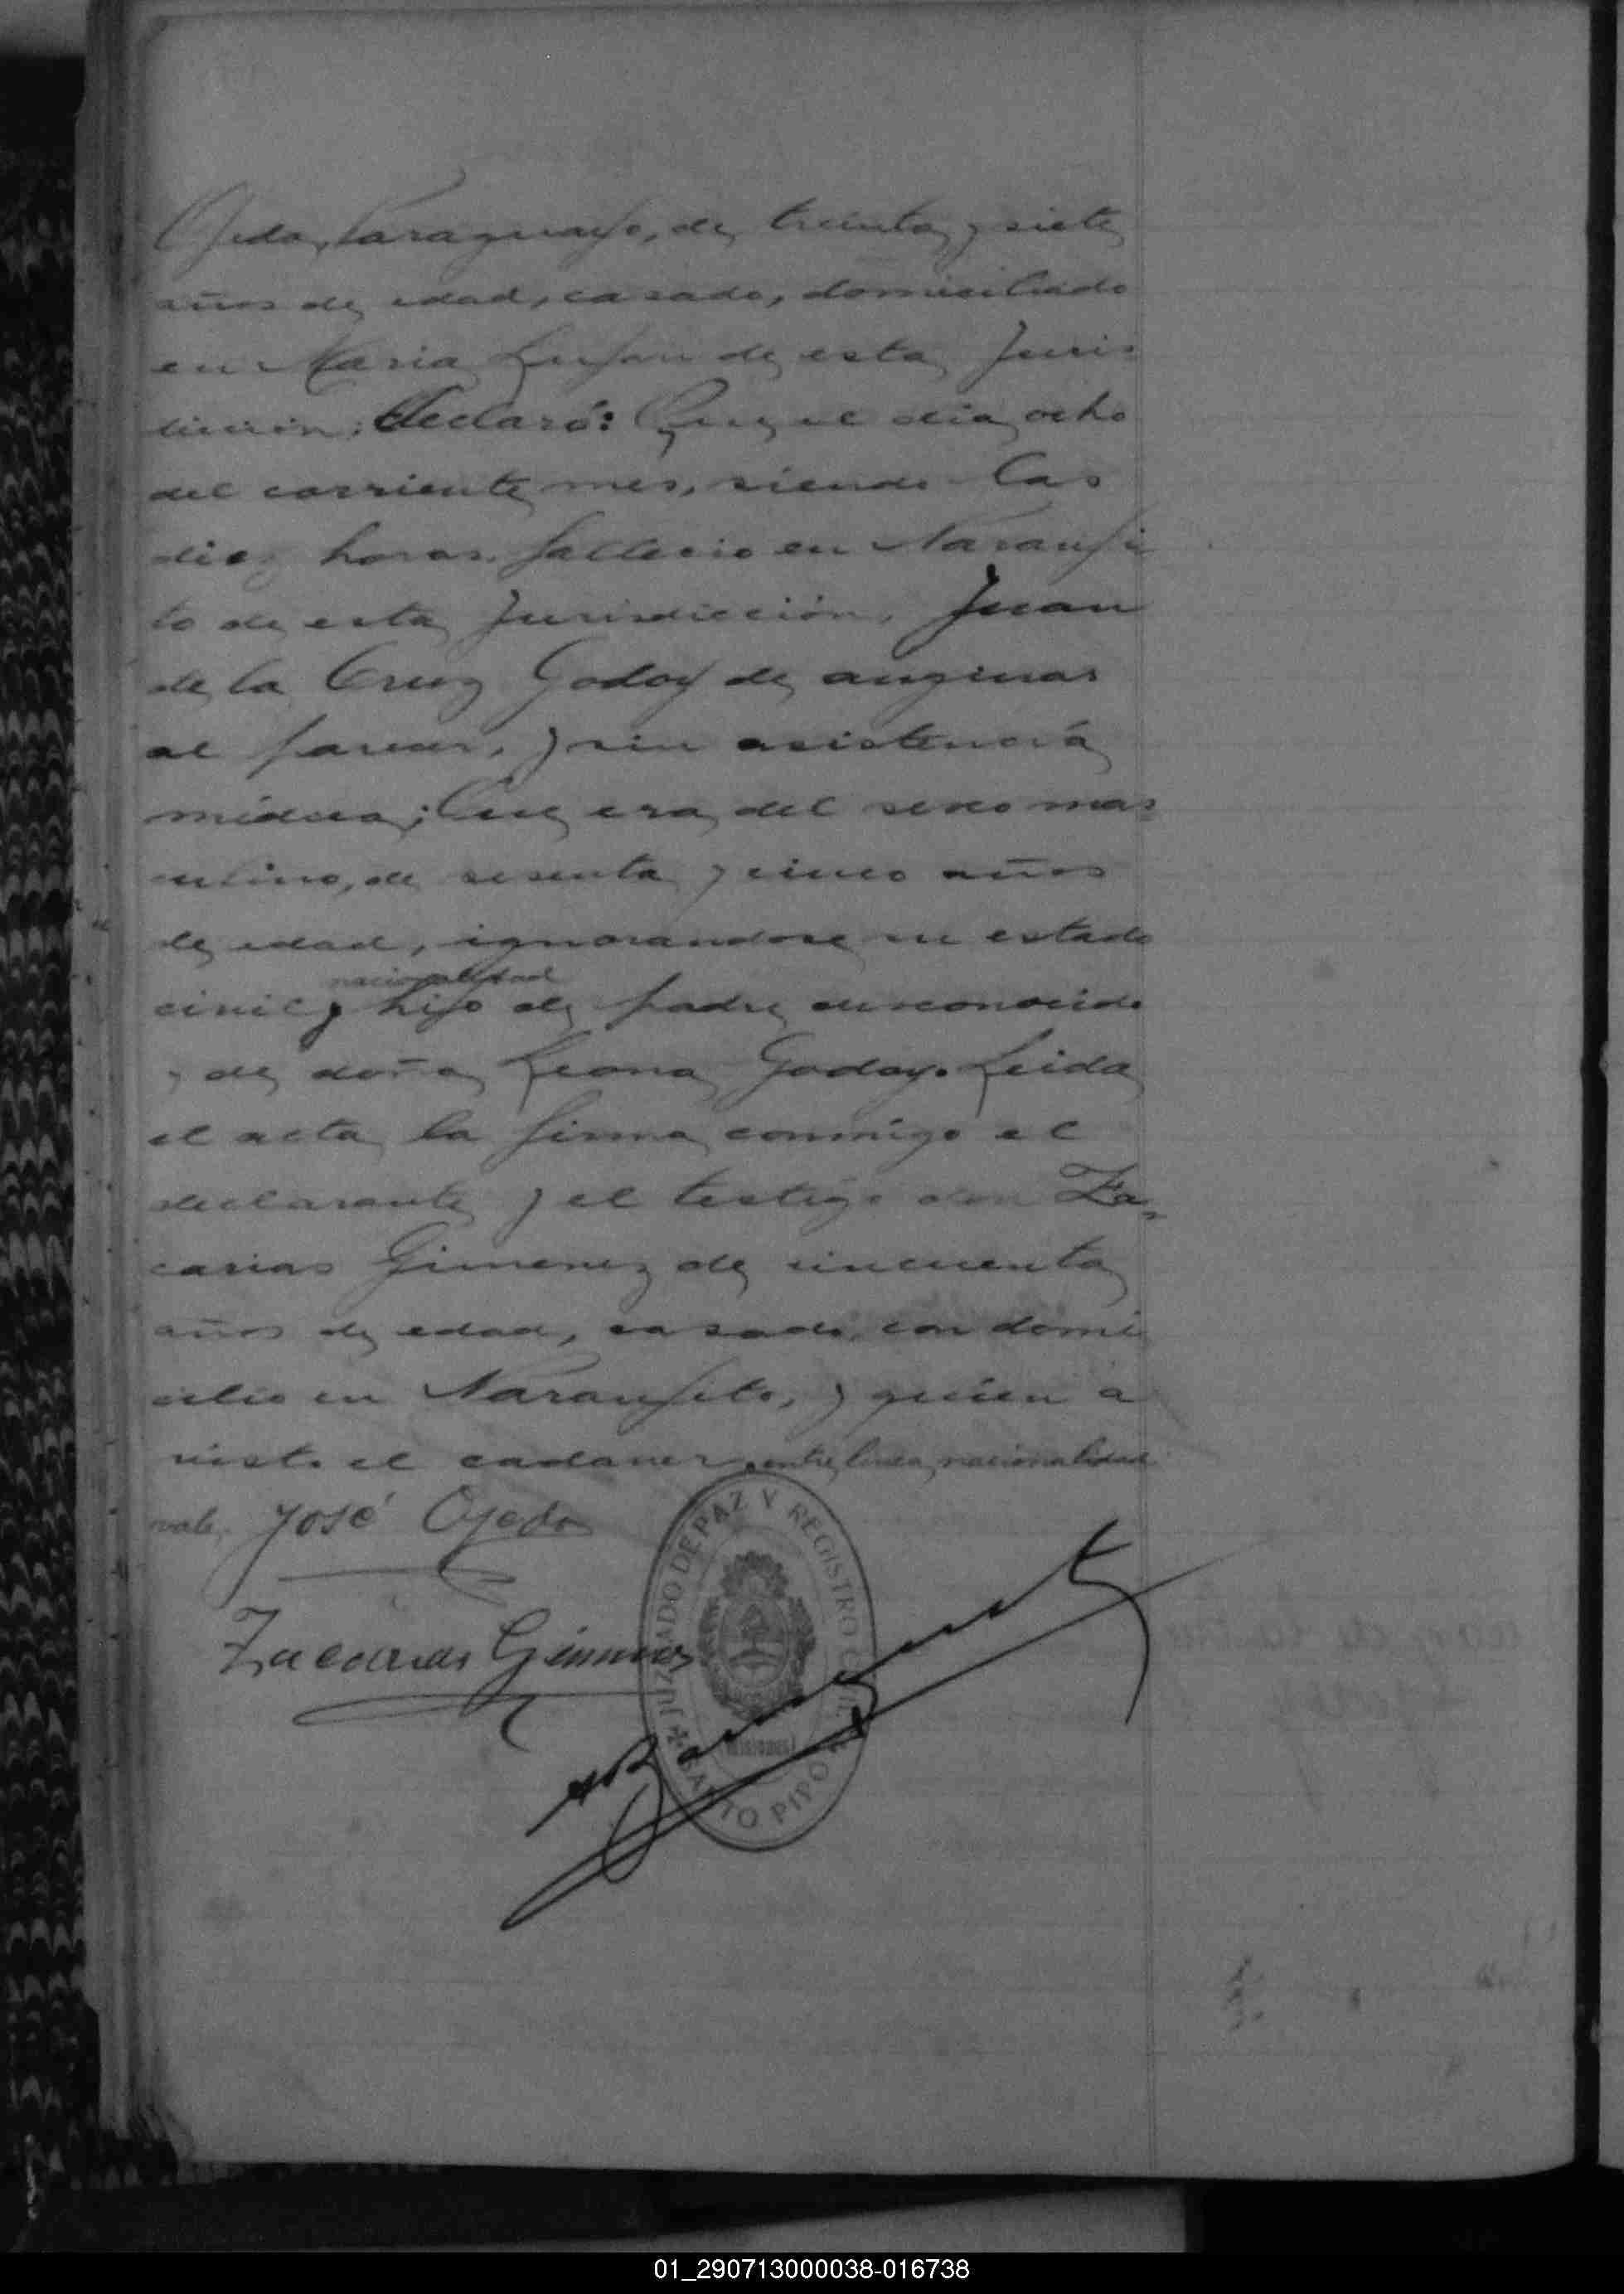 Ojeda, Paraguayo, de treinta y siete
años de edad, casado, domiciliado
en Maria Lujan de esta Juris-
dicción; Declaró: Que el dia ocho
del corriente mes, siendo las
diez horas fallecio en Naranji
to de esta Jurisdicción, Juan
de la Cruz Godoy de anginas
al parecer, y sin asistencia
médica; Que era del sexo mas=
culino, de sesenta y cinco años
de edad, ignorandose su estado
nacionalidad
civil y hijo de padre desconocido
y de doña Leona Godoy. Leida
el acta la firma conmigo el
declarante y el testigo don Za=
carias Gimenez de cincuenta
años de edad, casado, con domi
cilio en Naranjito, y quien a
visto el cadaver, entre linea nacionalidad
vale. José Ojeda
Zacarias Gimenez
JUZGADO DE PAZ Y REGISTRO CIVIL
(Misiones)
SANTO PIPO
01_290713000038-016738